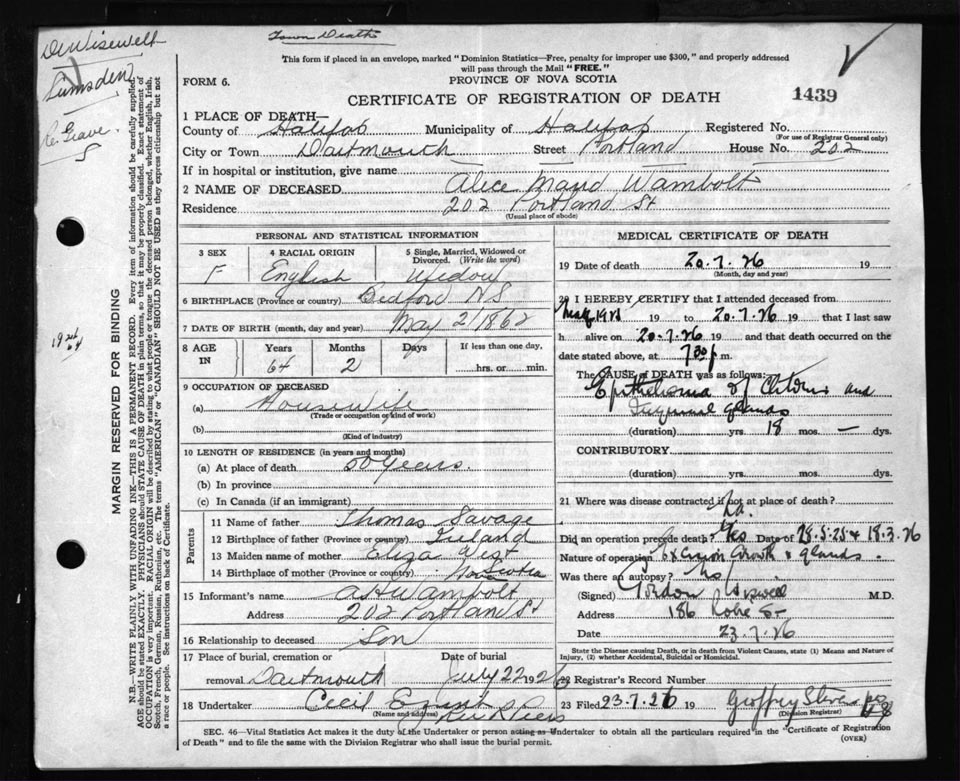 Town Death
Dr Wisewell
Lumsden
This form if placed in an envelope, marked "Dominion Statistics—Free, penalty for improper use $300," and properly addressed
will pass through the Mail "FREE."
FORM 6.
PROVINCE OF NOVA SCOTIA
CERTIFICATE OF REGISTRATION OF DEATH
1439
1 PLACE OF DEATH—
County of Halifax Municipality of Halifax Registered No.
(For use of Registrar General only)
City or Town Dartmouth Street Portland House No. 202
If in hospital or institution, give name
2 NAME OF DECEASED Alice Maud Wambolt
Residence 202 Portland St
(Usual place of abode)
PERSONAL AND STATISTICAL INFORMATION
3 SEX F
4 RACIAL ORIGIN English
5 Single, Married, Widowed or Divorced. (Write the word) Widow
6 BIRTHPLACE (Province or country) Bedford N S
7 DATE OF BIRTH (month, day and year) May 2/1862
8 AGE IN Years 64 Months 2 Days If less than one day, hrs. or min.
9 OCCUPATION OF DECEASED
(a) Housewife
(Trade or occupation or kind of work)
(b)
(Kind of industry)
10 LENGTH OF RESIDENCE (in years and months)
(a) At place of death 50 years.
(b) In province
(c) In Canada (if an immigrant)
Parents
11 Name of father Thomas Savage
12 Birthplace of father (Province or country) Ireland
13 Maiden name of mother Eliza West
14 Birthplace of mother (Province or country) Nova Scotia
15 Informant's name Wambolt
Address 202 Portland St
16 Relationship to deceased Son
17 Place of burial, cremation or removal Dartmouth
Date of burial July 22 1926
18 Undertaker Cecil
(Name and address)
MEDICAL CERTIFICATE OF DEATH
19 Date of death 20.7.26 19
(Month, day and year)
20 I HEREBY CERTIFY that I attended deceased from
19 to 20.7.26 19 that I last saw
h alive on 20.7.26 19 and that death occurred on the
date stated above, at 7.30 p m.
The CAUSE OF DEATH was as follows:
Epithelioma of Clitoris and
Inguinal glands
(duration) yrs. 18 mos. — dys.
CONTRIBUTORY
(duration) yrs. mos. dys.
21 Where was disease contracted if not at place of death?
Did an operation precede death? Yes Date of 28.5.25 & 18.3.26
Nature of operation Excision Growth & glands.
Was there an autopsy? No
(Signed) Gordon Wiswell M.D.
Address 186 Robie St
Date 23.7.26
State the Disease causing Death, or in death from Violent Causes, state (1) Means and Nature of
Injury, (2) whether Accidental, Suicidal or Homicidal.
22 Registrar's Record Number
23 Filed 23.7.26 19 Geoffrey Stevens
(Division Registrar)
SEC. 46—Vital Statistics Act makes it the duty of the Undertaker or person acting as Undertaker to obtain all the particulars required in the "Certificate of Registration
of Death" and to file the same with the Division Registrar who shall issue the burial permit.
(OVER)
MARGIN RESERVED FOR BINDING
N.B.—WRITE PLAINLY WITH UNFADING INK—THIS IS A PERMANENT RECORD. Every item of information should be carefully supplied.
AGE should be stated EXACTLY. PHYSICIANS should STATE CAUSE OF DEATH in plain terms, so that it may be properly classified. Exact statement of
OCCUPATION is very important. RACIAL ORIGIN will be described by stating to what people or tongue the deceased person belonged, whether English, Irish,
Scotch, French, German, Russian, Ruthenian, etc. The terms "AMERICAN" or "CANADIAN" SHOULD NOT BE USED as they express citizenship but not
a race or people. See instructions on back of Certificate.